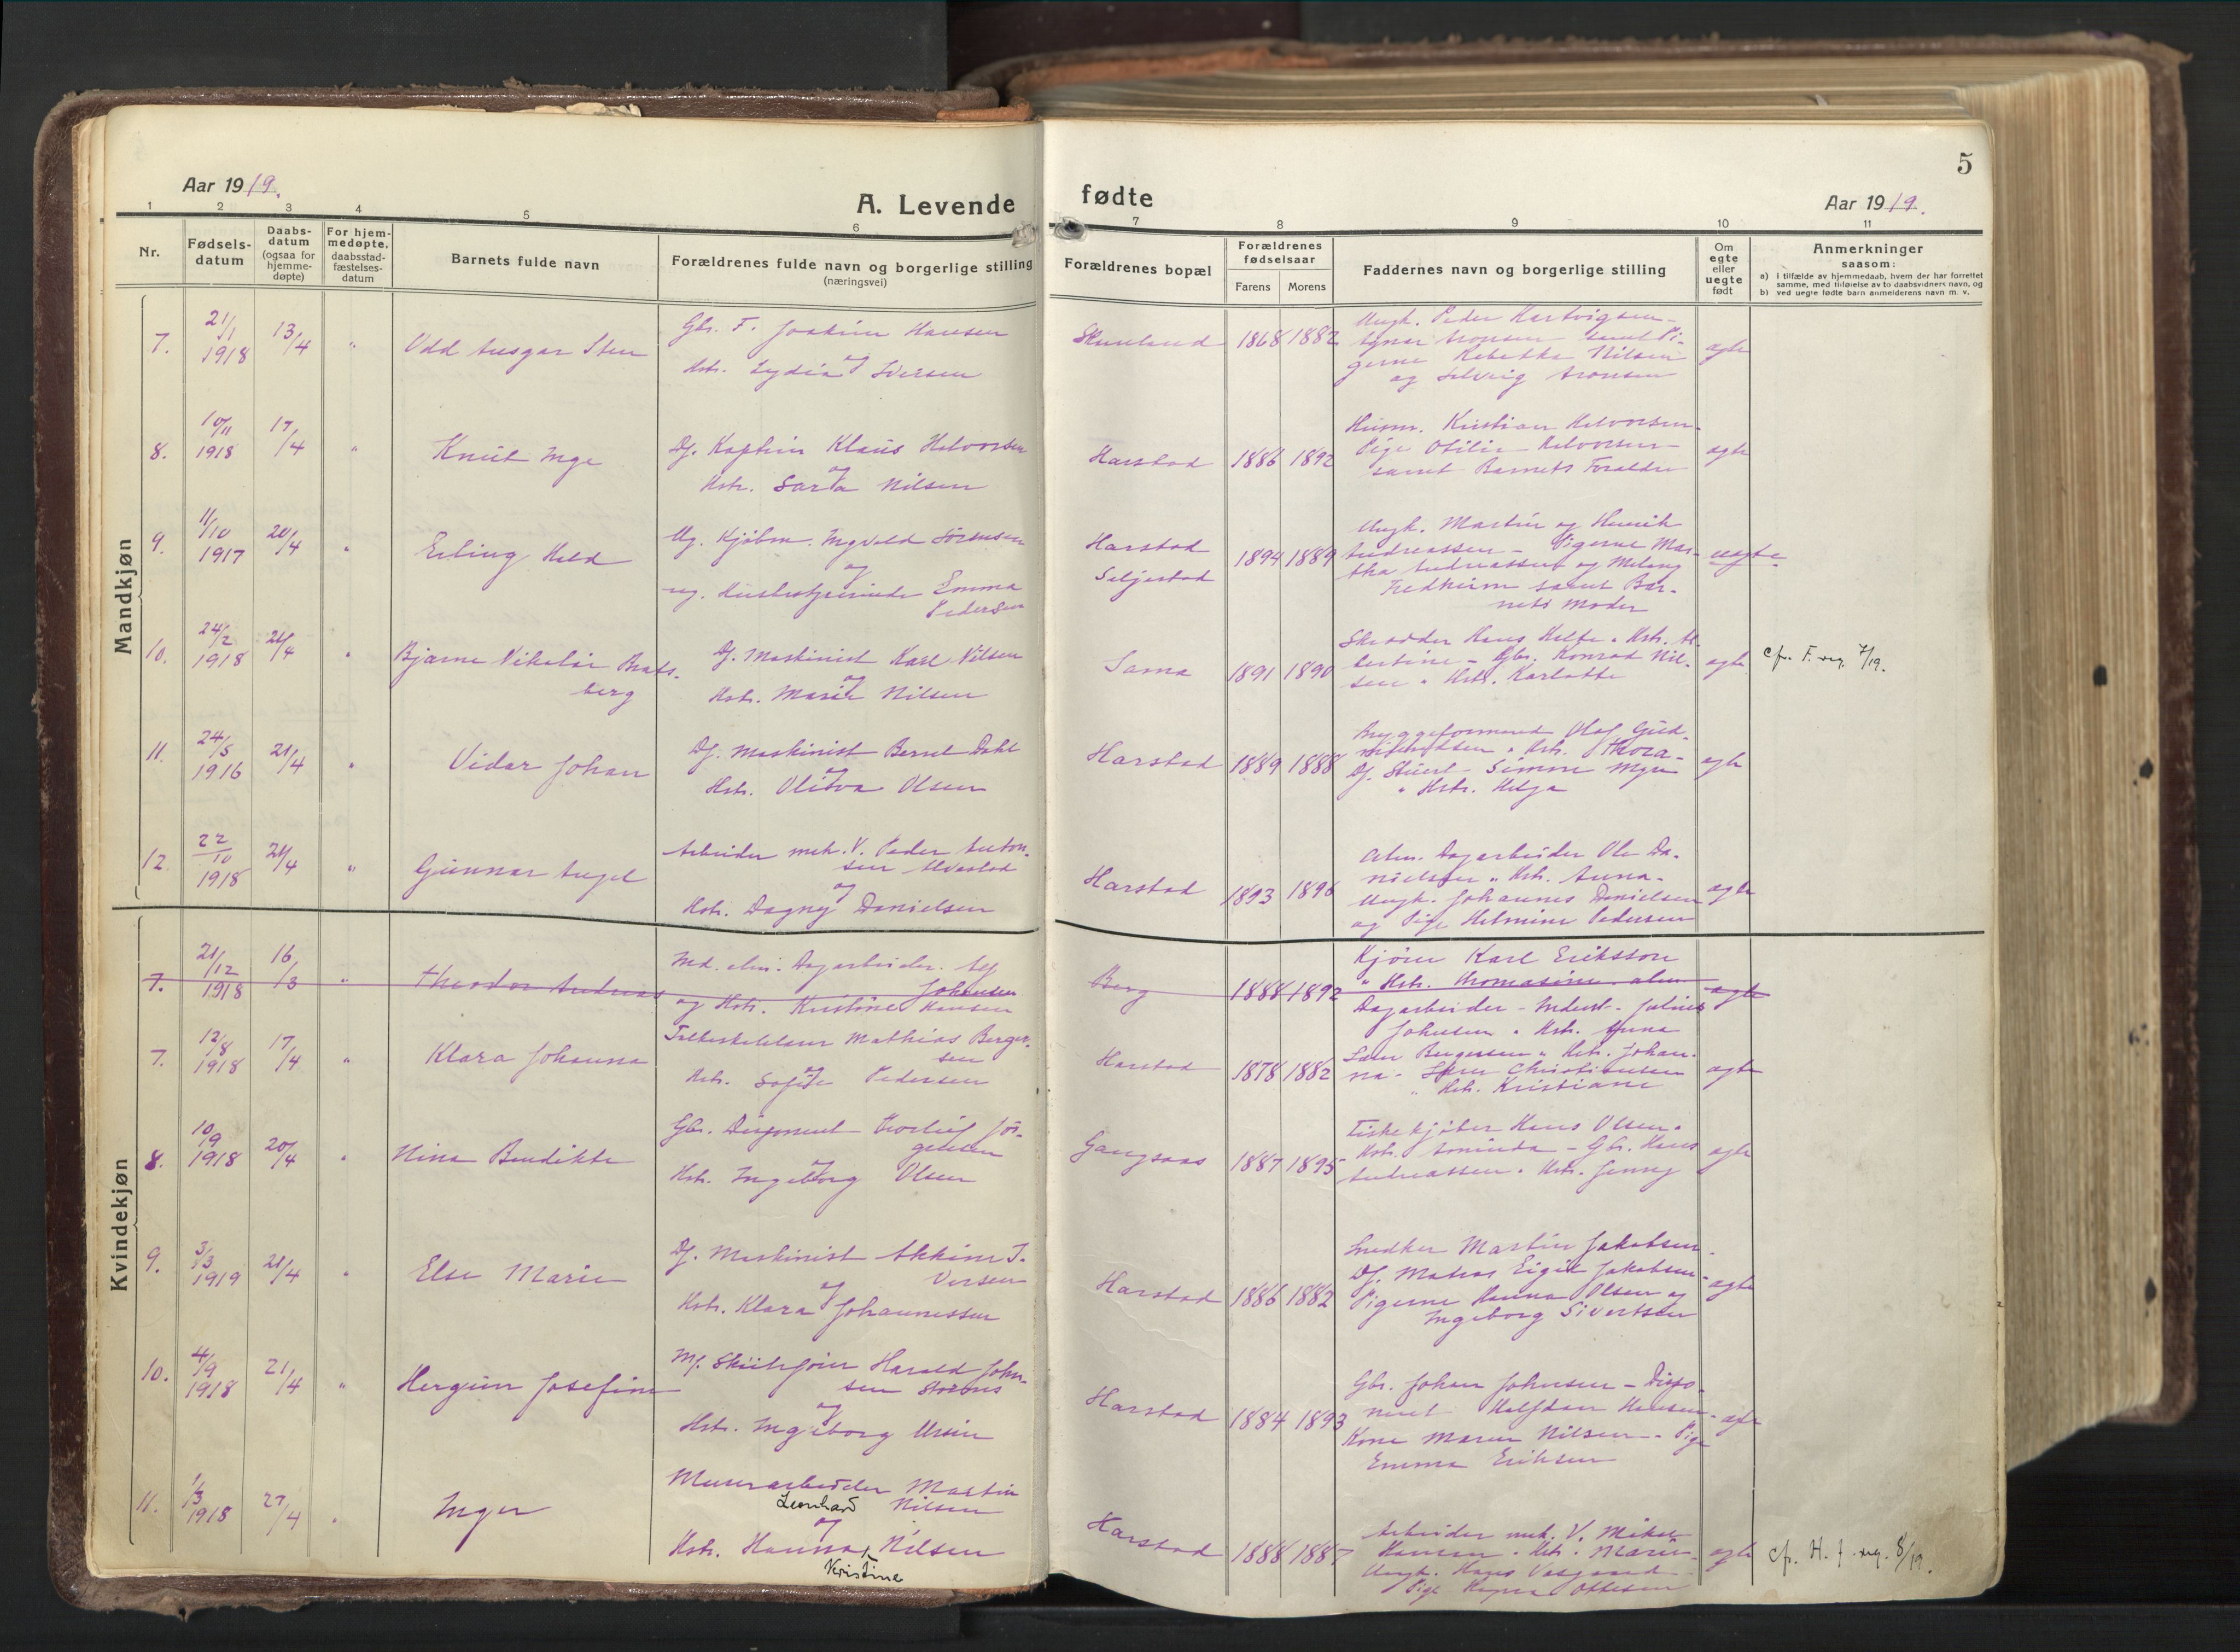 5
Aar 1919.
A. Levende fødte
Aar 1919.
1 2 3 4 5 6 7 8 9 10 11
Nr.
Fødsels-
datum
Daabs-
datum
(ogsaa for
hjemme-
døpte)
For hjem-
medøpte,
daabsstad-
fæstelses-
datum
Barnets fulde navn
Forældrenes fulde navn og borgerlige stilling
(næringsvei)
Forældrenes bopæl
Forældrenes
fødselsaar
Farens Morens
Faddernes navn og borgerlige stilling
Om
egte
eller
uegte
født
Anmerkninger
saasom:
a) i tilfælde av hjemmedaab, hvem der har forrettet
samme, med tilføielse av to daabsvidners navn, og
b) ved uegte fødte barn anmelderens navn m. v.
Mandkjøn
7. 21/1 1918 13/4 " Odd Ansgar Sten
Gbr. F. Joakim Hansen
og
Hstr. Lydia Iversen
1868 1882
Ungk. Peder Hartvigsen -
Aronsen samt Pi-
gerne Rebekka Nilsen
og Solveig Aronsen
egte
8. 10/11 1918 17/4 " Knut Inge
Df. Kaptein Klaus Halvorsen
og
Hstr. Sara Nilsen
Harstad 1886 1892
Kristian Halvorsen -
Pige Otilie Halvorsen
samt Barnets Forældre
egte
9. 11/10 1917 20/4 " Erling Hald
Ug. Kjøbm. Ingvald Sørensen
og
ug. Husbestyrerinde Emma
Pedersen
Harstad
Seljestad
1894 1889
Ungk. Martin og Henrik
Andreassen - Pigerne Mar-
tha Andreassen og
Fredheim samt Bar-
nets Moder
uegte
10. 24/2 1918 21/4 " Bjarne Nikolai Brats-
berg
Df. Maskinist Karl Nilsen
og
Hstr. Marie Nilsen
Sama 1891 1890
Skrædder Hans Holte " Hstr. Al-
bertine - Gbr. Konrad Nil-
sen " Hstr. Karlotte
egte
cfr. F. reg. 7/19.
11. 24/5 1916 21/4 " Vidar Johan
Df. Maskinist Bernt Dahl
og
Hstr. Olitva Olsen
Harstad 1889 1888
Bryggeformand Olaf Gud-
" Hstr. Thora -
Df. Stuert Simon Myre
" Hstr. Helga
egte
12. 22/10 1918 21/4 " Gunnar Angel
Arbeider mek. V. Peder Anton-
sen Alvestad
og
Hstr. Dagny Danielsen
Harstad 1893 1896
Alm. Dagarbeider Ole Da-
nielsen " Hstr. Anna -
Ungk. Johannes Danielsen
og Pige Helmine Pedersen
egte
Kvindekjøn
7. 21/12 1918 16/3 " Theodor Andreas
Md. alm. Dagarbeider Alf
Johansen
og Hstr. Kristine Hansen
Berg 1888 1892
Kjører Karl Eriksson
" Hstr. Thomasine - alm
Dagarbeider - Indust. Julius
Johnsen " Hstr. Anna
egte
7. 12/8 1918 17/4 " Klara Johanna
Mathias Berger-
sen
og
Hstr. Sofie Pedersen
Harstad 1878 1882
Bergersen " Hstr. Johan-
na - Christiansen
" Hstr. Kristiane
egte
8. 10/9 1918 20/4 " Nina Bendikte
Gbr. Disponent Thorleif Jør-
gensen
og
Hstr. Ingeborg Olsen
Gangsaas 1887 1895
Fiskekjøber Hans Olsen "
Hstr. Aminda - Gbr. Hans
Andreassen " Hstr. Jenny
egte
9. 3/3 1919 21/4 " Else Marie
Df. Maskinist I-
versen
og
Hstr. Klara Johannessen
Harstad 1886 1882
Snedker Martin Jakobsen -
Df. Matros Eigil Jakobsen -
Pigerne Hanna Olsen og
Ingeborg Sivertsen
egte
10. 4/9 1918 21/4 " Hergun Josefine
Harald John-
sen Stornes
og
Hstr. Ingeborg Ursin
Harstad 1884 1893
Gbr. Johan Johnsen - Dispo-
nent Halfdan Hansen -
Kone Maren Nilsen - Pige
Emma Eriksen
egte
11. 1/3 1918 27/4 " Inger
Murerarbeider Martin
Leonhard Nilsen
og
Hstr. Hanna Nilsen
Kristine
Harstad 1888 1887
Arbeider mek. V. Mikal
Hansen " Hstr. Marie -
Ungk. Hans
Pige Ottesen
egte
cfr. H. f. reg. 8/19.